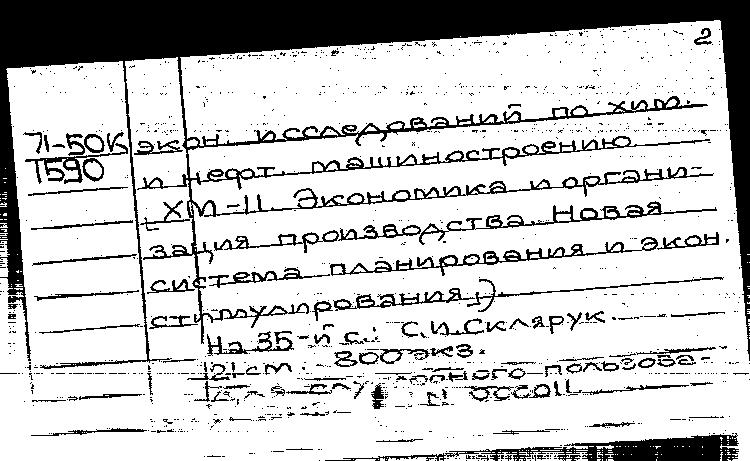 2
71-50К экон. исследований по хим.
1590 и нефт. машиностроению
ХМ-11. Экономика и органи-
зация производства. Новая
система планирования и экон.
стимулирования).
На 35-й с.: С.И.Склярук.
21 см. 800 экз.
Для служебного пользова-
N 000011